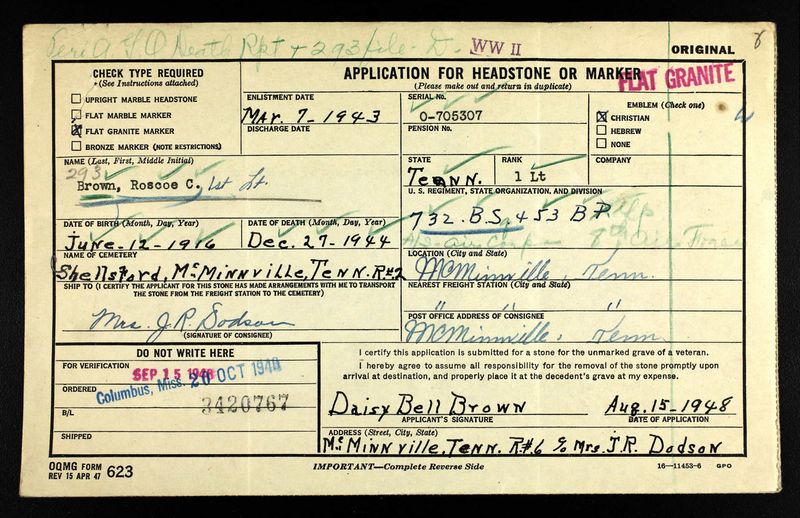 Death Rpt + 293 file - WW II
ORIGINAL
CHECK TYPE REQUIRED
(See Instructions attached)
UPRIGHT MARBLE HEADSTONE
FLAT MARBLE MARKER
FLAT GRANITE MARKER
BRONZE MARKER (NOTE RESTRICTIONS)
APPLICATION FOR HEADSTONE OR MARKER
(Please make out and return in duplicate)
FLAT GRANITE
ENLISTMENT DATE
Mar. 7-1943
DISCHARGE DATE
SERIAL No.
O-705307
PENSION No.
EMBLEM (Check one)
CHRISTIAN
HEBREW
NONE
NAME (Last, First, Middle Initial)
293
Brown, Roscoe C. 1st Lt.
STATE
Tenn.
RANK
1 Lt
COMPANY
U. S. REGIMENT, STATE ORGANIZATION, AND DIVISION
732. B.S. 453 B
DATE OF BIRTH (Month, Day, Year)
June-12-1916
DATE OF DEATH (Month, Day, Year)
Dec. 27-1944
NAME OF CEMETERY
Shellsford, McMinnville, Tenn. R#2
LOCATION (City and State)
McMinnville, Tenn.
SHIP TO (I CERTIFY THE APPLICANT FOR THIS STONE HAS MADE ARRANGEMENTS WITH ME TO TRANSPORT
THE STONE FROM THE FREIGHT STATION TO THE CEMETERY)
Mrs. J.R. Dodson
(SIGNATURE OF CONSIGNEE)
NEAREST FREIGHT STATION (City and State)
" " "
POST OFFICE ADDRESS OF CONSIGNEE
McMinnville, Tenn.
DO NOT WRITE HERE
FOR VERIFICATION
SEP 15 1948
ORDERED
Columbus, Miss. 20 OCT 1948
B/L
3420767
SHIPPED
I certify this application is submitted for a stone for the unmarked grave of a veteran.
I hereby agree to assume all responsibility for the removal of the stone promptly upon
arrival at destination, and properly place it at the decedent's grave at my expense.
Daisy Bell Brown
APPLICANT'S SIGNATURE
Aug. 15-1948
DATE OF APPLICATION
ADDRESS (Street, City, State)
McMinnville, Tenn. R#6 c/o Mrs. J.R. Dodson
OQMG FORM
REV 15 APR 47
623
IMPORTANT—Complete Reverse Side
16—11453-6 GPO